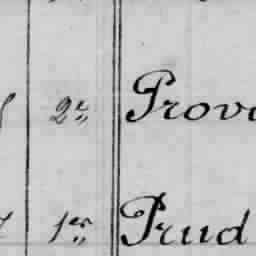 2e Prov
1er Prud